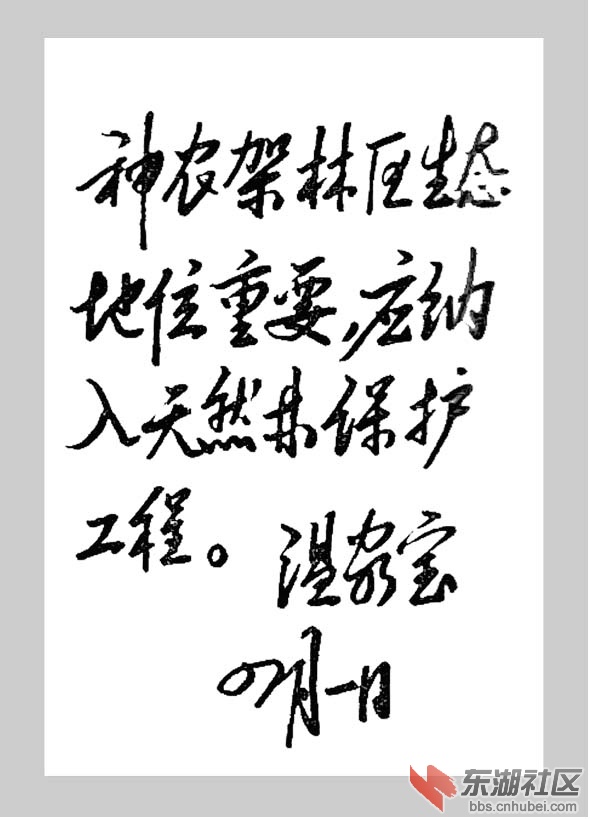 神农架林区生态
地位重要,应纳
入天然林保护
工程。
温家宝
四月一日
东湖社区
bbs.cnhubei.com